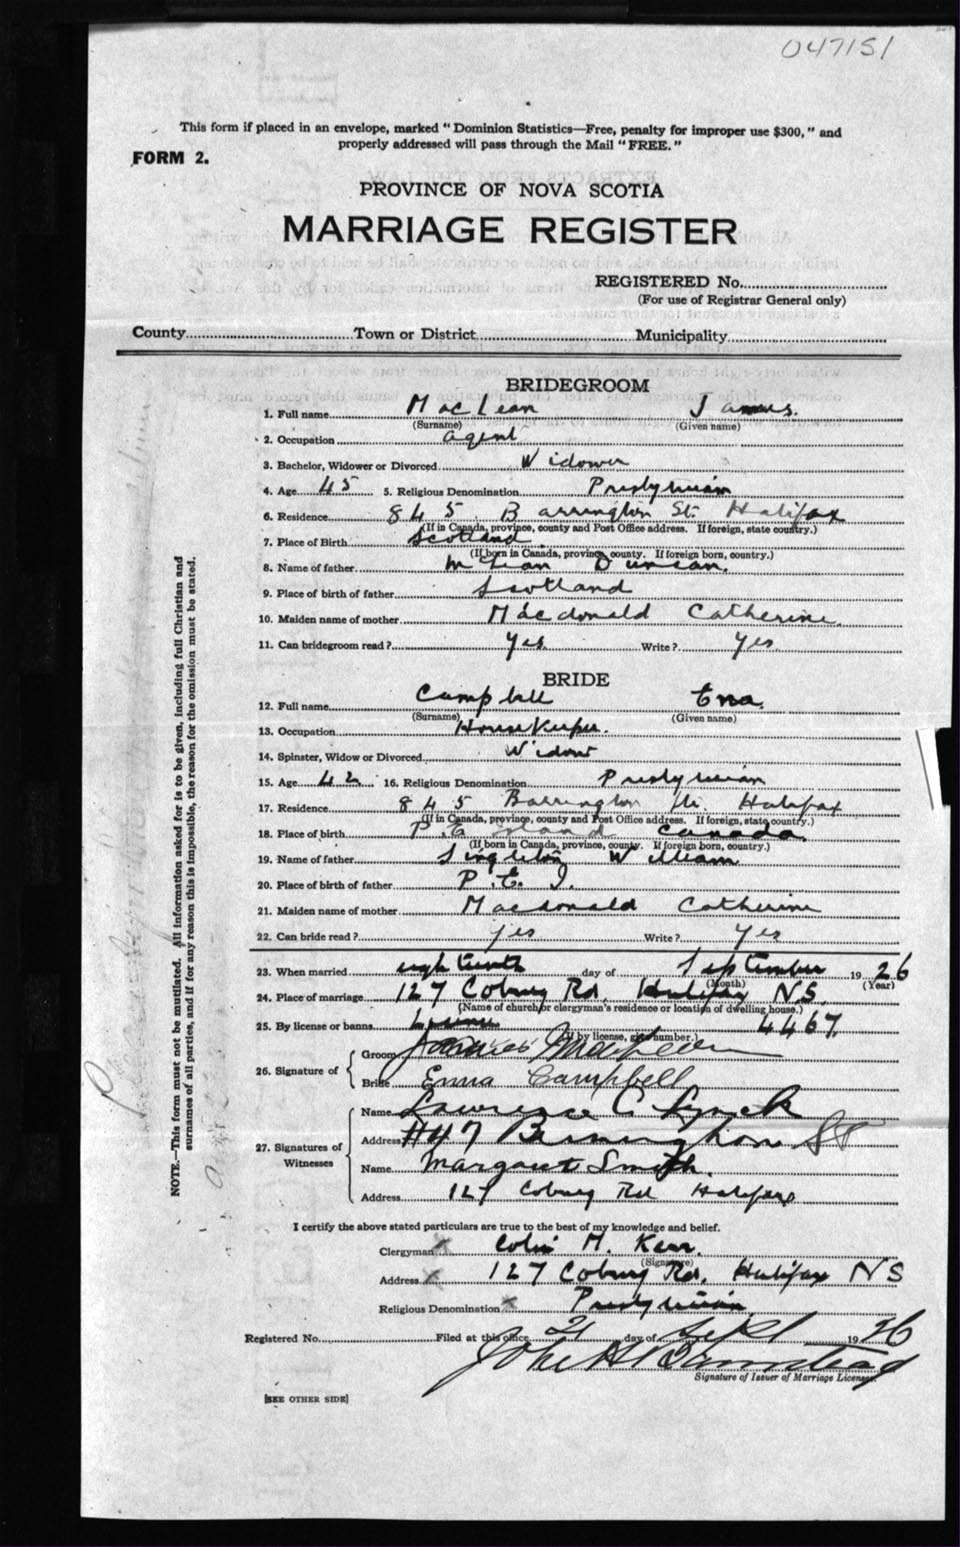 047151
This form if placed in an envelope, marked "Dominion Statistics—Free, penalty for improper use $300," and
properly addressed will pass through the Mail "FREE."
FORM 2.
PROVINCE OF NOVA SCOTIA
MARRIAGE REGISTER
REGISTERED No.
(For use of Registrar General only)
County Town or District Municipality
BRIDEGROOM
1. Full name MacLean James.
(Surname) (Given name)
2. Occupation agent
3. Bachelor, Widower or Divorced Widower
4. Age 45 5. Religious Denomination Presbyterian
6. Residence 845 Barrington St. Halifax
(If in Canada, province, county and Post Office address. If foreign, state country.)
7. Place of Birth Scotland
(If born in Canada, province, county. If foreign born, country.)
8. Name of father McLean Duncan.
9. Place of birth of father Scotland
10. Maiden name of mother Macdonald Catherine
11. Can bridegroom read? Yes. Write? Yes.
BRIDE
12. Full name Campbell Ena
(Surname) (Given name)
13. Occupation House Keeper.
14. Spinster, Widow or Divorced Widow
15. Age 42 16. Religious Denomination Presbyterian
17. Residence 845 Barrington St. Halifax
(If in Canada, province, county and Post Office address. If foreign, state country.)
18. Place of birth P.E. Island Canada
(If born in Canada, province, county. If foreign born, country.)
19. Name of father Singleton William
20. Place of birth of father P.E.I.
21. Maiden name of mother Macdonald Catherine
22. Can bride read? yes Write? Yes
23. When married eighteenth day of September 1926
(Month) (Year)
24. Place of marriage 127 Coburg Rd. Halifax NS.
(Name of church or clergyman's residence or location of dwelling house.)
25. By license or banns License 4467
(If by license, give number.)
26. Signature of
Groom James MacLean
Bride Enna Campbell
27. Signatures of Witnesses
Name Lawrence C Lynch
Address #47 St
Name Margaret Smith.
Address 127 Coburg Rd Halifax
I certify the above stated particulars are true to the best of my knowledge and belief.
Clergyman Colin M. Kerr.
(Signature)
Address 127 Coburg Rd. Halifax NS
Religious Denomination Presbyterian
Registered No. Filed at this office 21 day of Sept 1926
John H
Signature of Issuer of Marriage Licenses
[SEE OTHER SIDE]
NOTE.—This form must not be mutilated. All information asked for is to be given, including full Christian and
surnames of all parties, and if for any reason this is impossible, the reason for the omission must be stated.